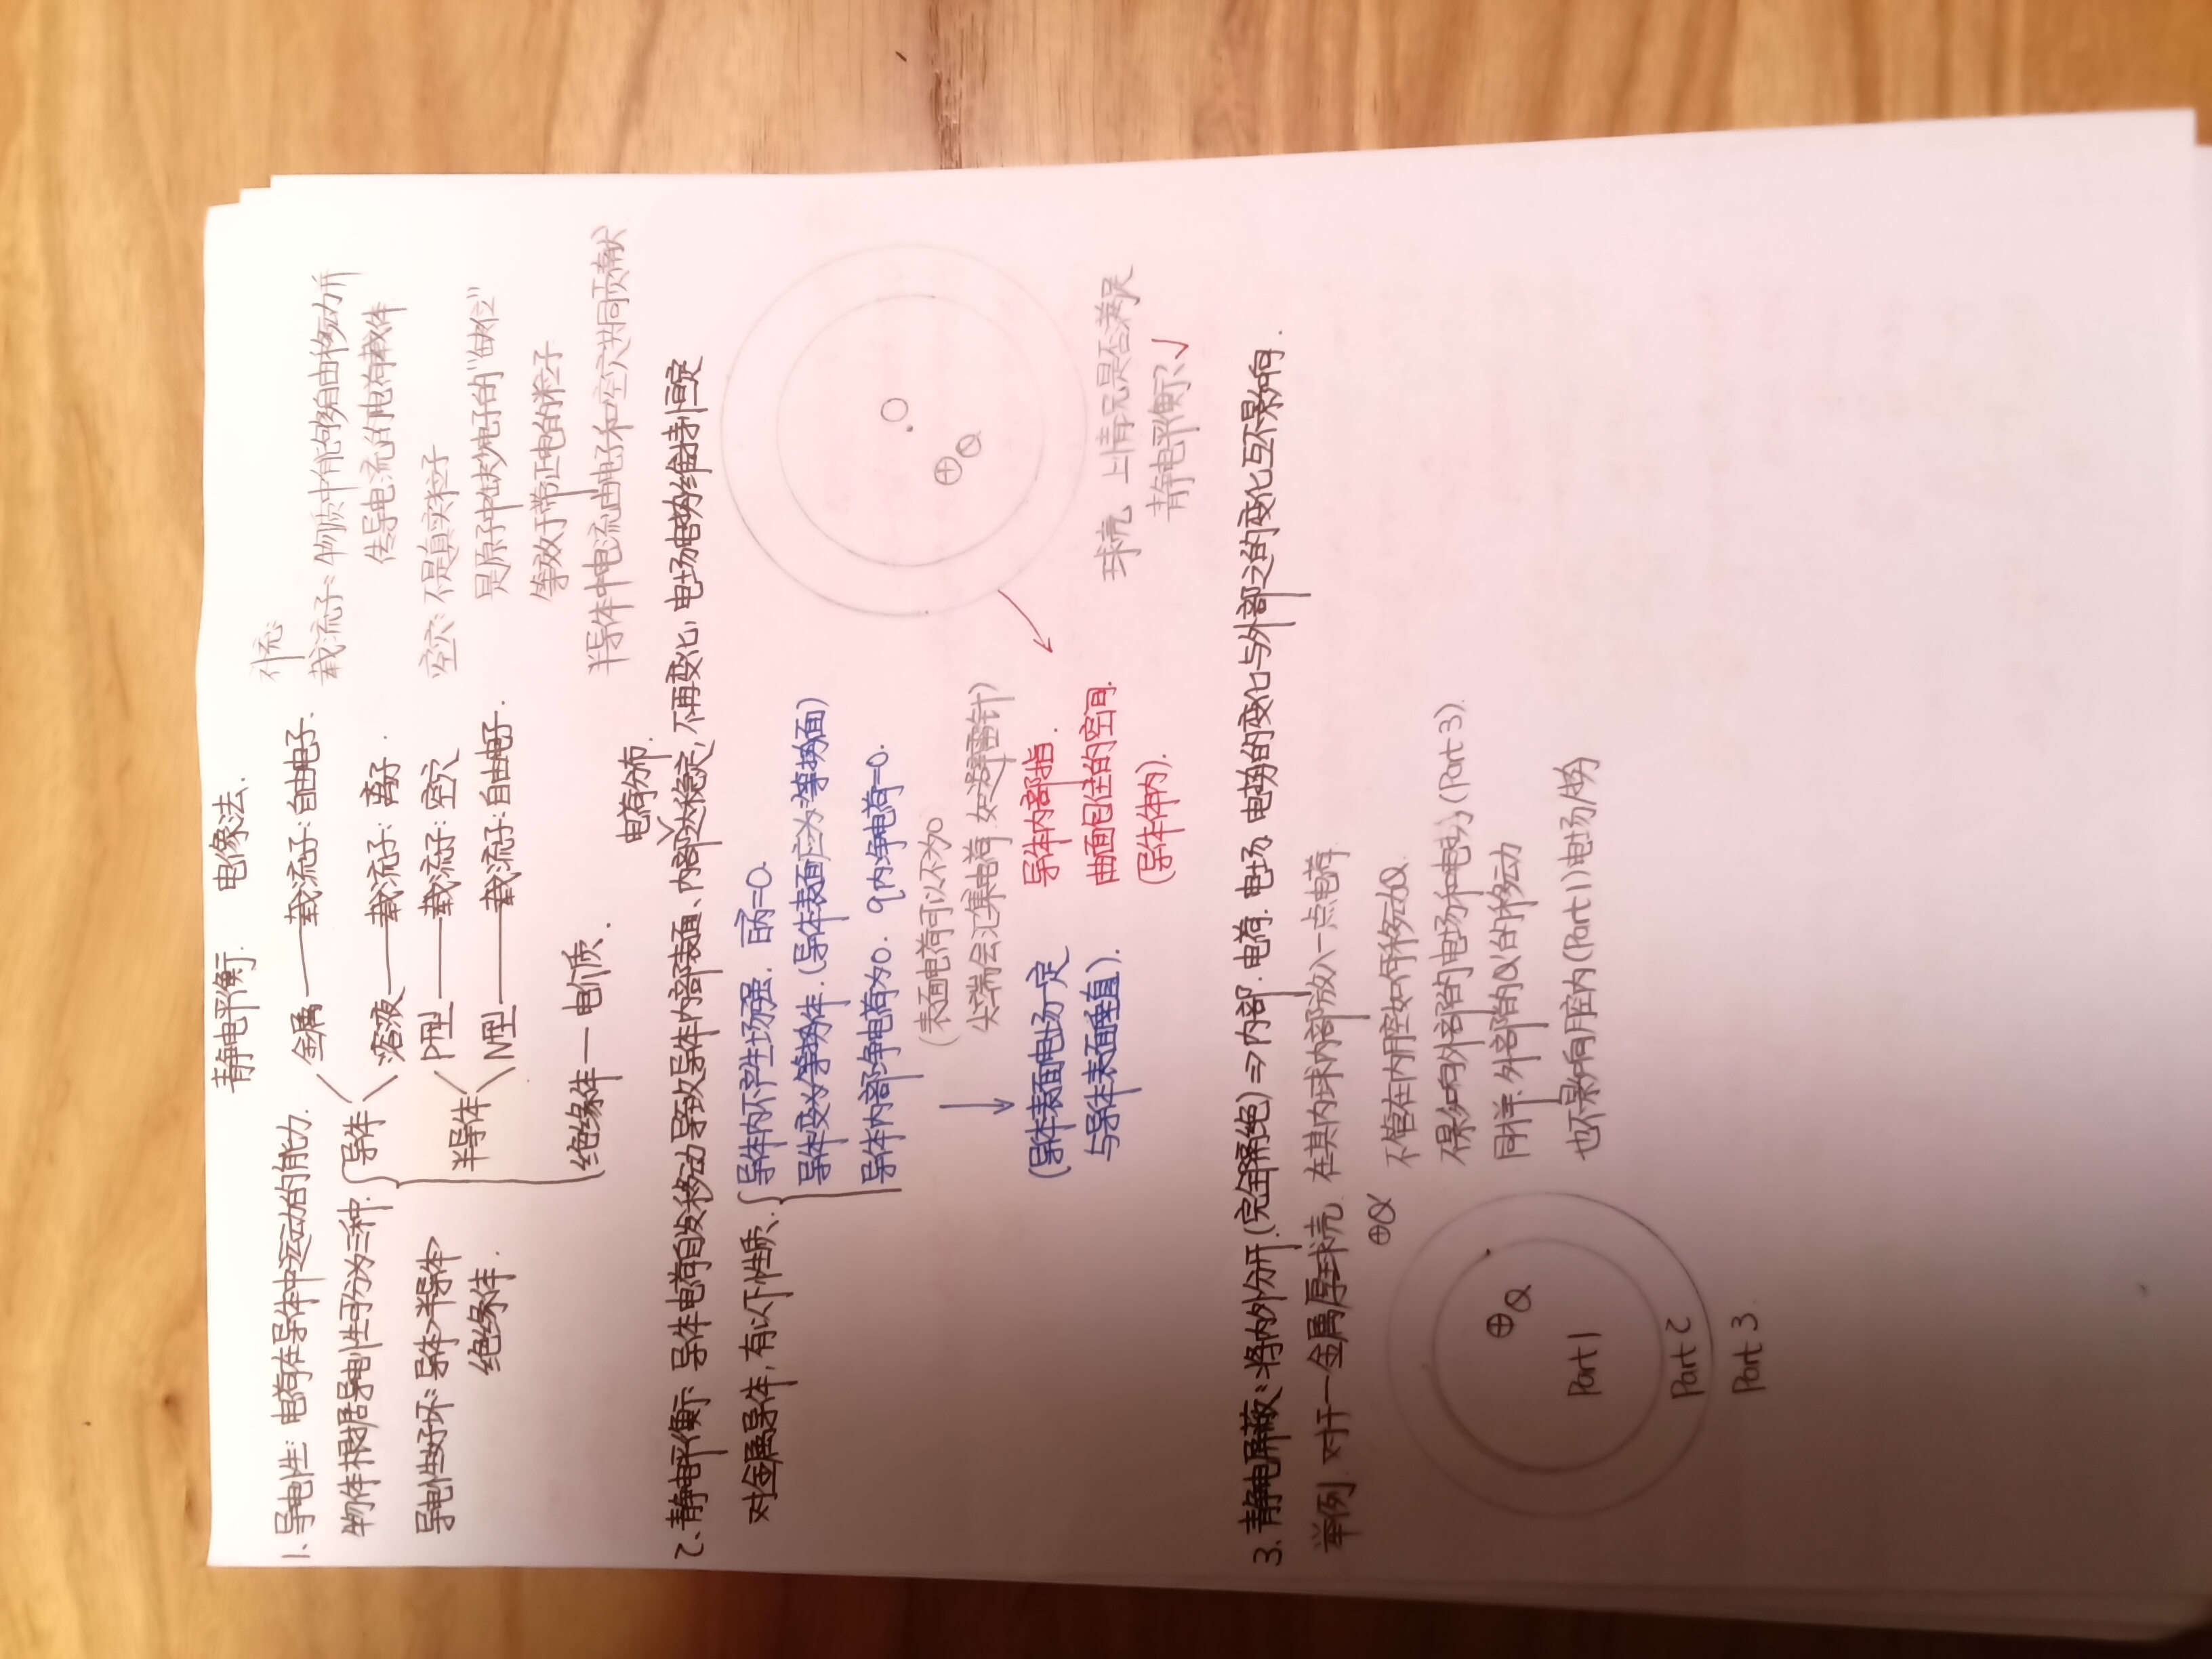 静电平衡. 电像法.
1、导电性: 电荷在导体中运动的能力.
物体根据导电性可分为三种.
导体
金属——载流子: 自由电子.
溶液——载流子: 离子.
导电性好坏: 导体>半导体>
绝缘体.
半导体
P型——载流子: 空穴
N型——载流子: 自由电子.
绝缘体—电介质.
补充:
载流子: 物质中能够自由移动并
传导电流的电荷载体
空穴: 不是真实粒子
是原子中缺少电子的"缺位"
等效于带正电的粒子
半导体中电流由电子和空穴共同贡献
电荷分布.
2、静电平衡: 导体电荷自发移动导致导体内部表面、内部达稳定, 不再变化, 电场电势维持恒定
对金属导体, 有以下性质.
导体内不产生场强. E内=0.
导体变为等势体. (导体表面应为等势面)
导体内部净电荷为0. q内净电荷=0.
(表面电荷可以不为0
尖端会汇集电荷 如避雷针)
(导体表面电场一定
与导体表面垂直).
导体内部指.
曲面包住的空间.
(导体体内).
O
⊕Q
球壳 上情况是否满足
静电平衡? √
3. 静电屏蔽: 将内外分开. (完全隔绝) ⇒ 内部. 电荷. 电场. 电势的变化与外部之的变化互不影响.
举例. 对于一金属厚球壳. 在其内球内部放入一点电荷
⊕Q'
不管在内腔如何移动Q.
不影响外部的电场和电势 (Part 3).
同样. 外部的Q'的移动
也不影响腔内(Part 1)电场/势
⊕Q
Part 1
Part 2
Part 3.